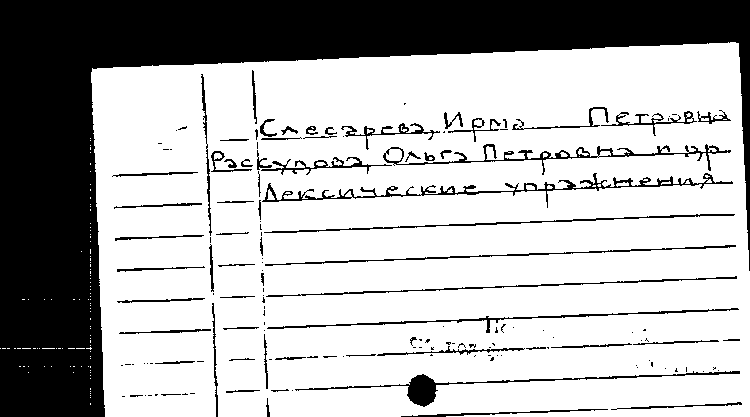 Слесарева, Ирма Петровна
Рассудова, Ольга Петровна и др.
Лексические упражнения